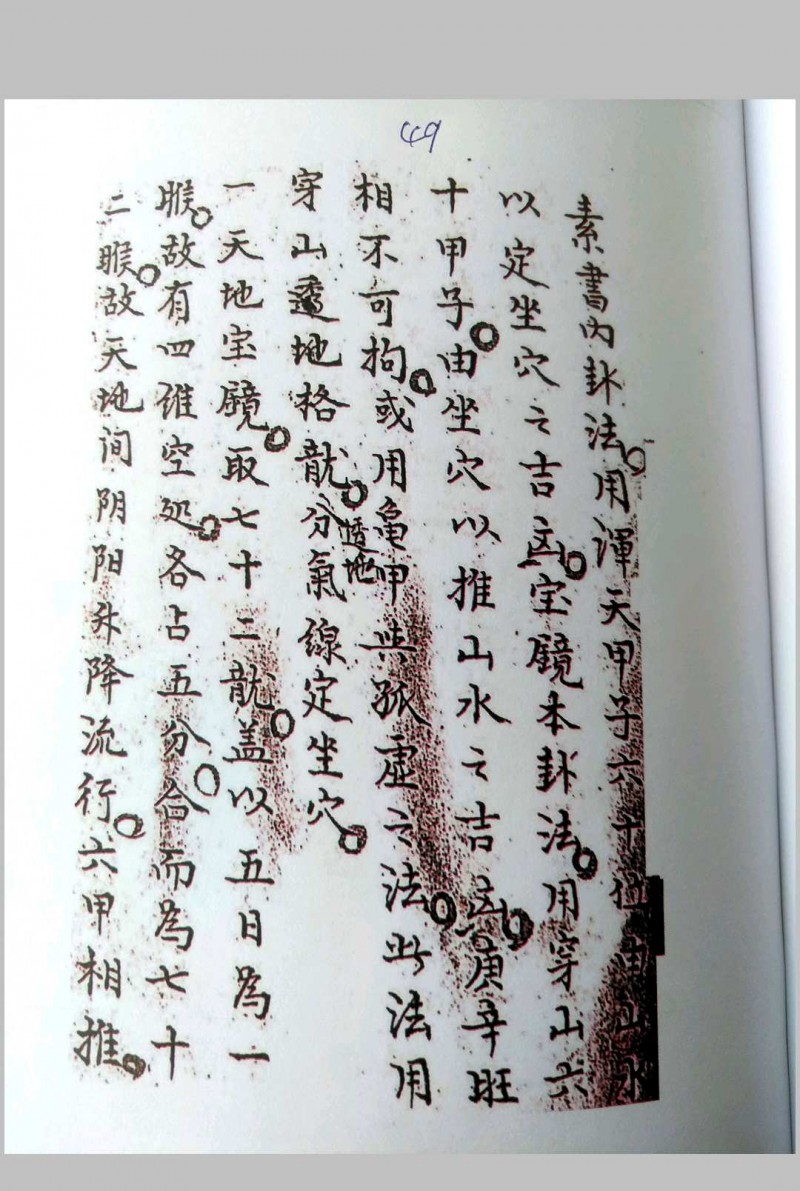 49
素書内卦法。用渾天甲子六十位由山水
以定坐穴之吉凶。宝镜本卦法。用穿山六
十甲子。由坐穴以推山水之吉凶。庚辛旺
相不可拘。或用亀甲共孤虚之法。此法用
穿山透地格龍。透地分氣線定坐穴。
一天地宝镜。取七十二龍。盖以五日為一
睺。故有四维空处。各占五分。合而為七十
二睺。故天地间阴阳升降流行。六甲相推。